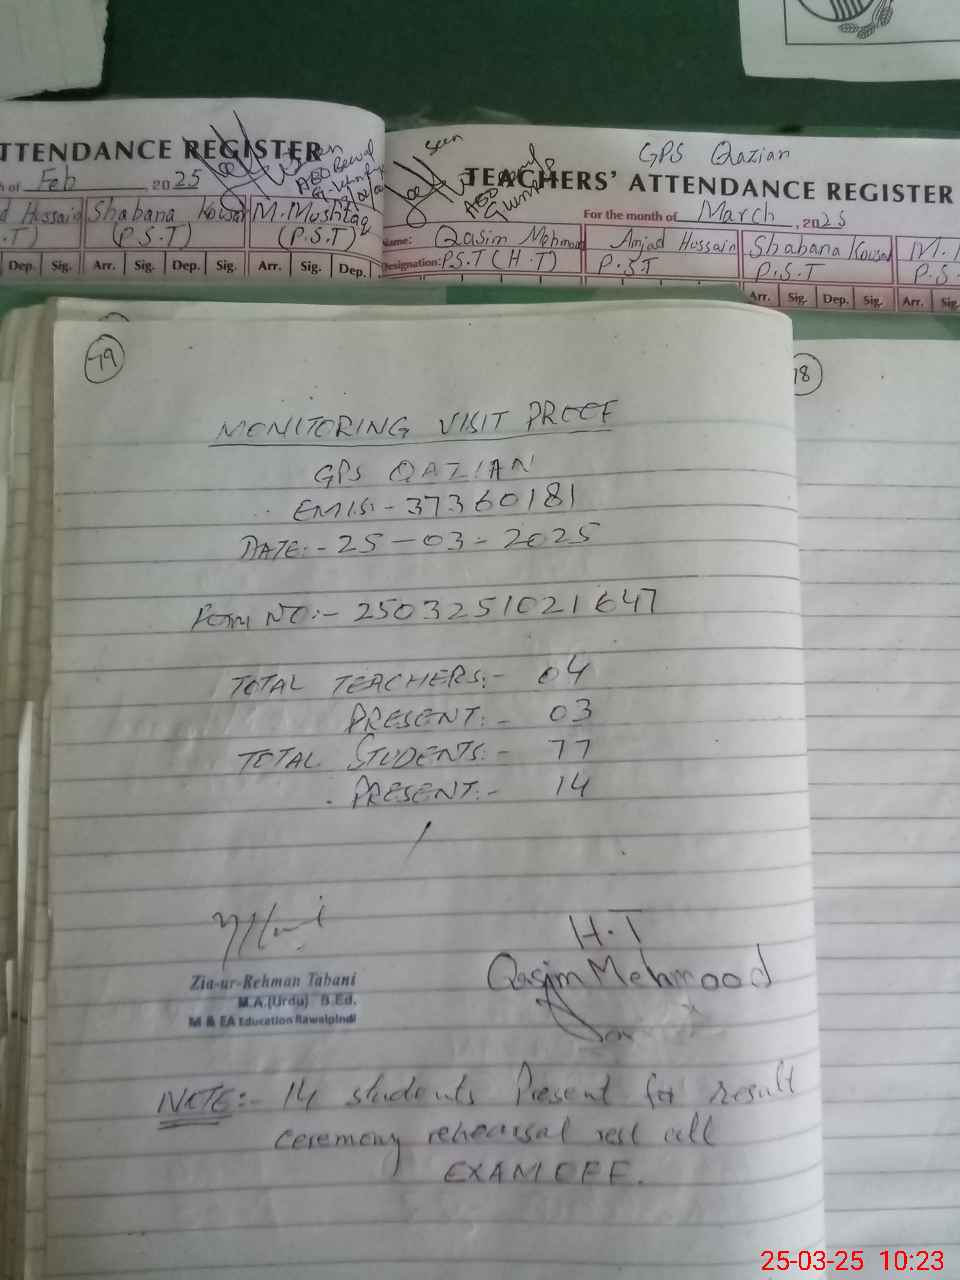 TTENDANCE REGISTER
h of Feb 2025
d Hussain Shabana Kowsar M. Mushtaq
.T) (P.S.T) (P.S.T)
Dep. Sig. Arr. Sig. Dep. Sig. Arr. Sig. Dep.
Seen
AEO Bewal
seen
AEO
GPS Qazian
TEACHERS' ATTENDANCE REGISTER
For the month of March, 2025
Name: Qasim Mehmood Amjad Hussain Shabana Kowsar M.
Designation: P.S.T (H.T) P.S.T P.S.T P.S
Arr. Sig. Dep. Sig. Arr. Sig.
79
78
MONITORING VISIT PROOF
GPS QAZIAN
EMIS:- 37360181
DATE:- 25-03-2025
FORM NO:- 2503251021647
TOTAL TEACHERS:- 04
PRESENT:- 03
TOTAL STUDENTS:- 77
PRESENT:- 14
Zia-ur-Rehman Tabani
M.A.(Urdu) B.Ed.
M & EA Education Rawalpindi
H.T
Qasim Mehmood
NOTE:- 14 students Present for result
ceremony rehearsal rest all
EXAM OFF.
25-03-25 10:23